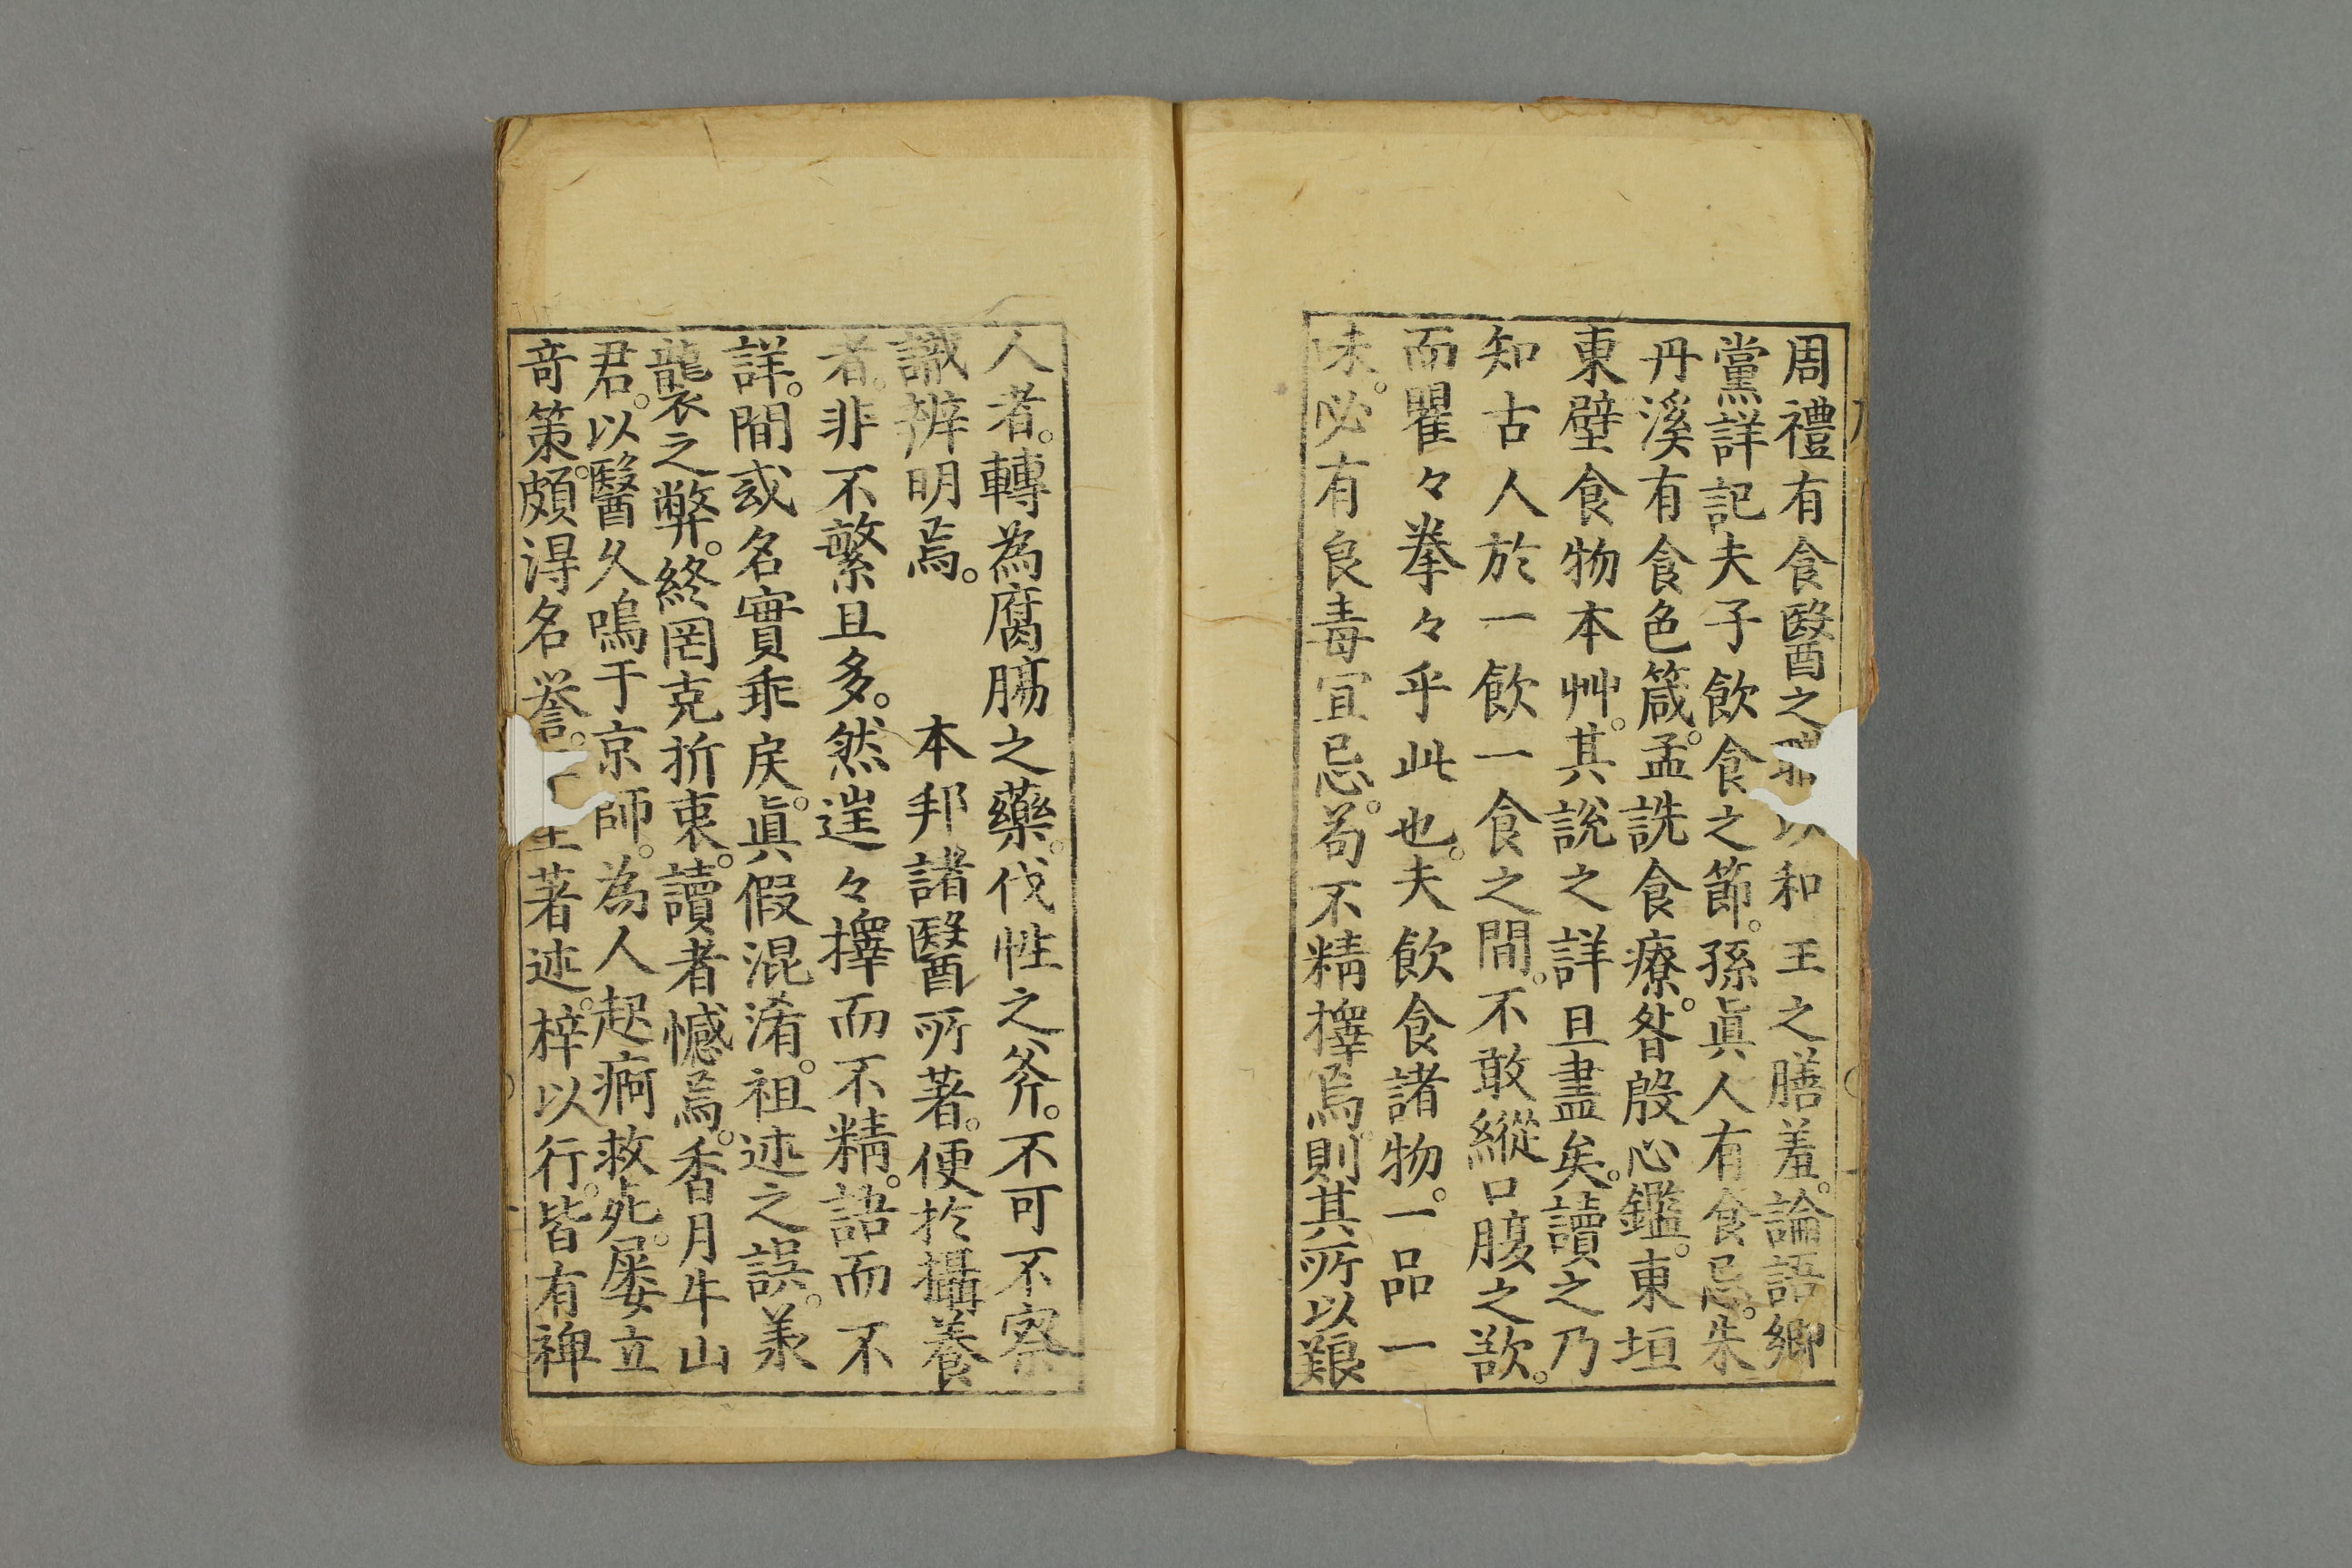 周禮有食醫之職以和王之膳羞。論語鄉
黨詳記夫子飲食之節。孫眞人有食忌。朱
丹溪有食色箴。孟詵食療。昝殷心鑑。東垣
東壁食物本艸。其說之詳且盡矣。讀之乃
知古人於一飲一食之間。不敢縱口腹之歡。
而瞿々拳々乎此也。夫飲食諸物。一品一
味。必有良毒宜忌。苟不精擇焉。則其所以艱
人者。轉為腐腸之藥。伐性之斧。不可不察
識辨明焉。　　本邦諸醫所著。便於攝養
者。非不繁且多。然逞々擇而不精。語而不
詳。間或名實乖戾。眞假混淆。祖述之誤。羕
襲之弊。終罔克折衷。讀者憾焉。香月牛山
君。以醫久鳴于京師。為人起痾救死。屡立
竒策。頗淂名誉。著述。梓以行。皆有裨